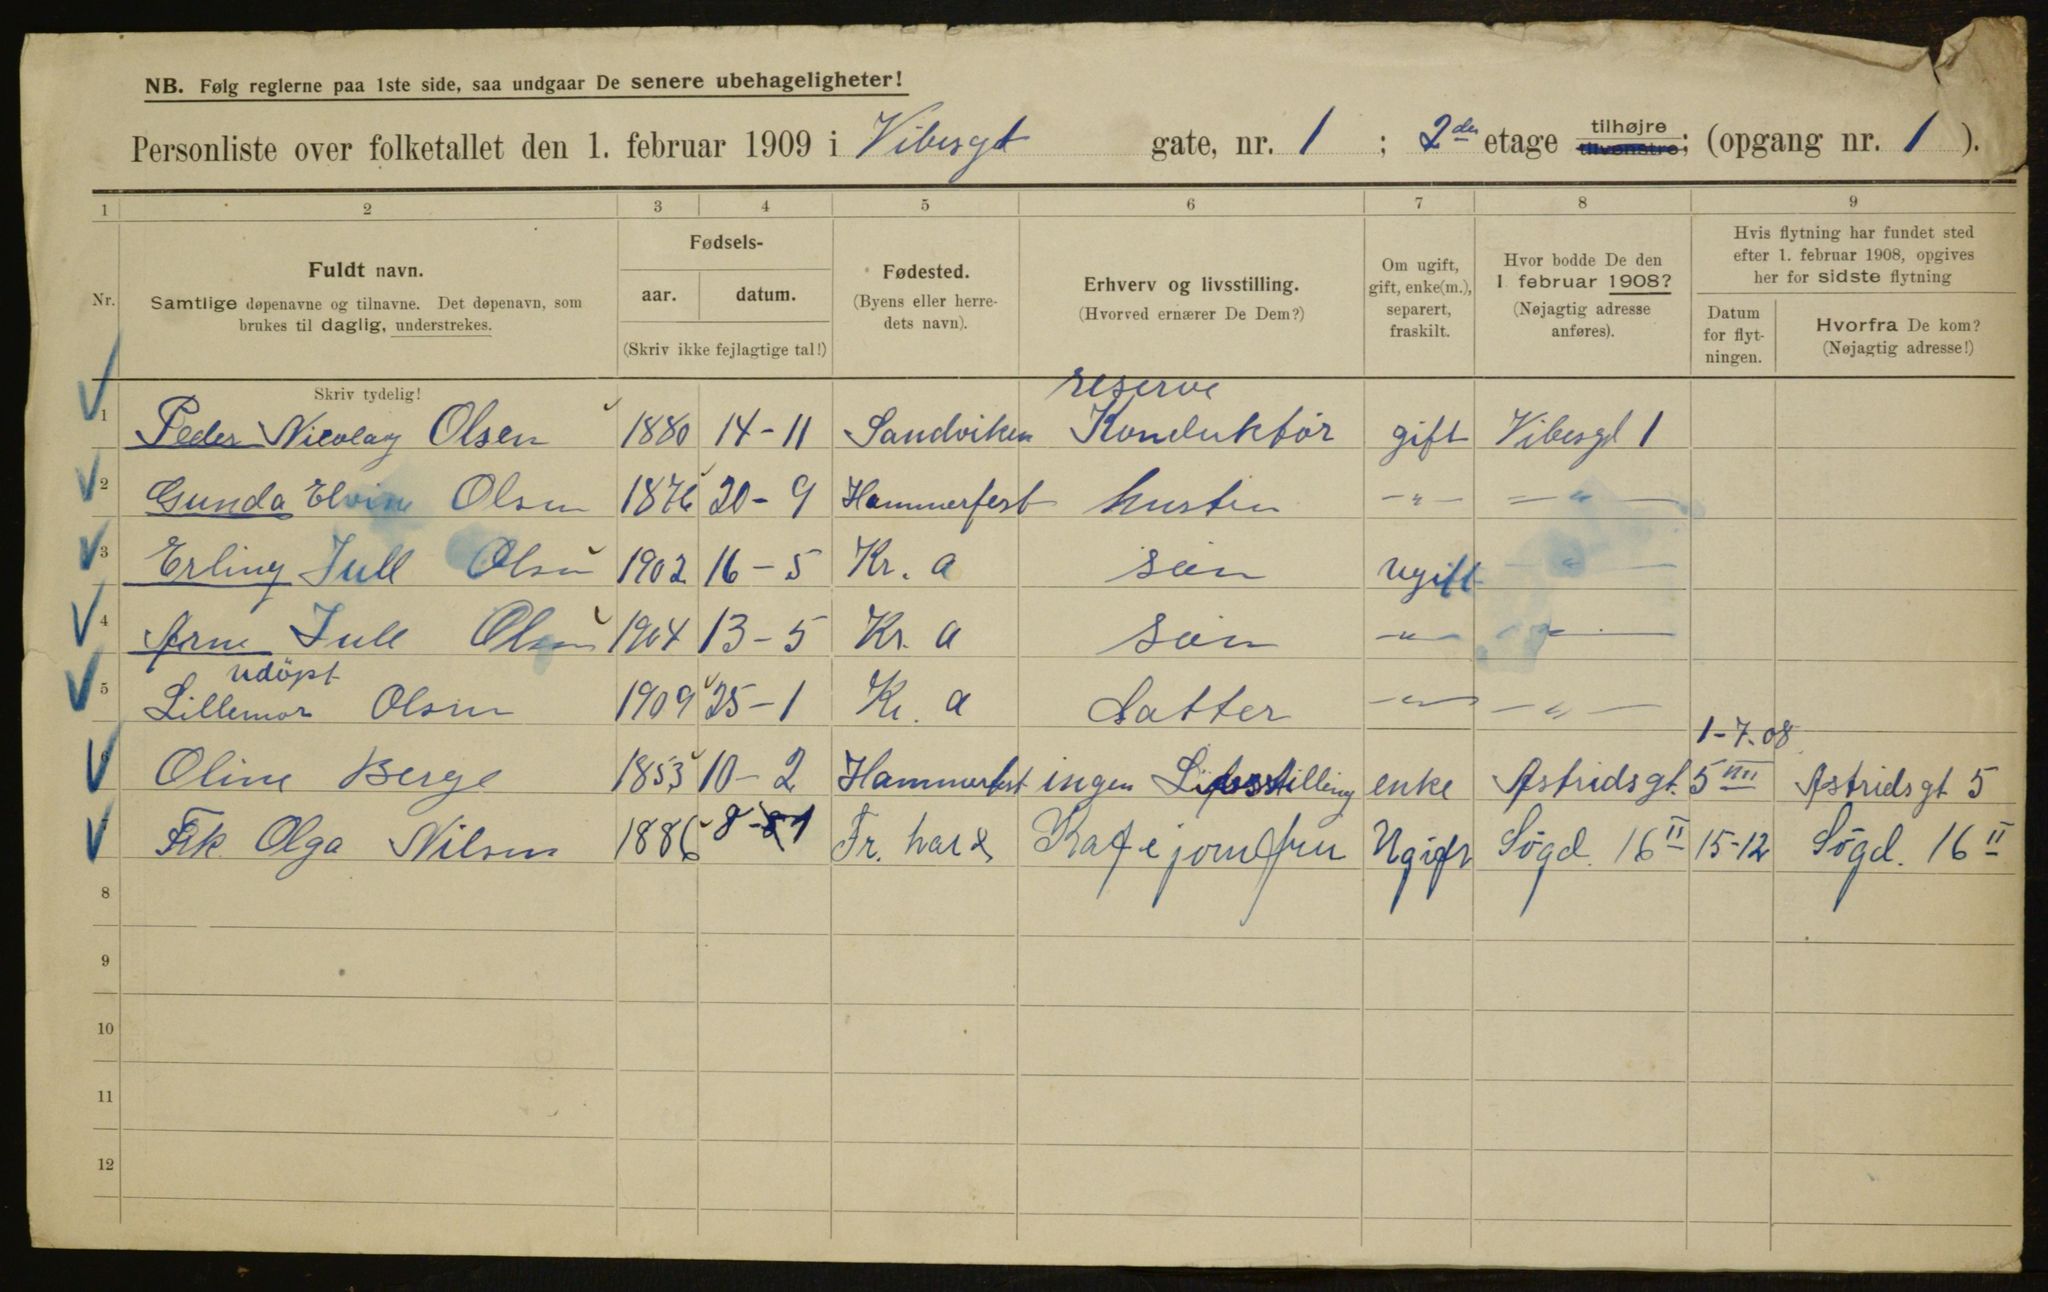 NB. Følg reglerne paa 1ste side, saa undgaar De senere ubehageligheter!
Personliste over folketallet den 1. februar 1909 i Vibesgt gate, nr. 1 ; 2den etage tilhøjre tilvenstre; (opgang nr. 1 ).
1 2 3 4 5 6 7 8 9
Nr.
Fuldt navn.
Samtlige døpenavne og tilnavne. Det døpenavn, som
brukes til daglig, understrekes.
Skriv tydelig!
Fødsels-
aar. datum.
(Skriv ikke fejlagtige tal!)
Fødested.
(Byens eller herre-
dets navn).
Erhverv og livsstilling.
(Hvorved ernærer De Dem?)
Om ugift,
gift, enke(m.),
separert,
fraskilt.
Hvor bodde De den
1. februar 1908?
(Nøjagtig adresse
anføres).
Hvis flytning har fundet sted
efter 1. februar 1908, opgives
her for sidste flytning
Datum
for flyt-
ningen.
Hvorfra De kom?
(Nøjagtig adresse!)
reserve
1 Peder Nicolay Olsen 1880 14-11 Sandviken Konduktör gift Vibesgt 1
2 Gunda Elvine Olsen 1876 20-9 Hammerfest hustru -"- -"-
3 Erling Jull Olsen 1902 16-5 Kr. a søn ugift -"-
4 Arne Jull Olsen 1904 13-5 Kr. a søn -"- -"-
udöpt
5 Lillemor Olsen 1909 25-1 Kr. a datter -"- -"-
1-7-08
6 Oline Berge 1853 10-2 Hammerfest ingen Livsstilling enke Astridsgt. 5 IIII Astridsgt 5
7 Frk. Olga Nilsen 1886 8- Fr. hald Kafejomfru Ugift Søgd. 16 II 15-12 Søgd. 16 II
8
9
10
11
12